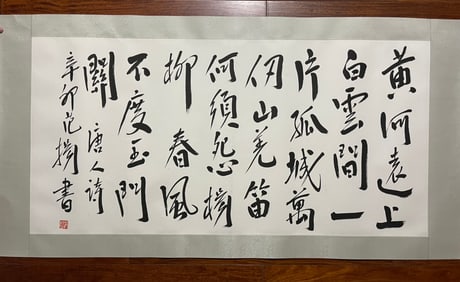 黄河遠上
白雲間一
片孤城萬
仞山羌笛
何須怨楊
柳春風
不度玉門
關 唐人詩
辛卯范揚書